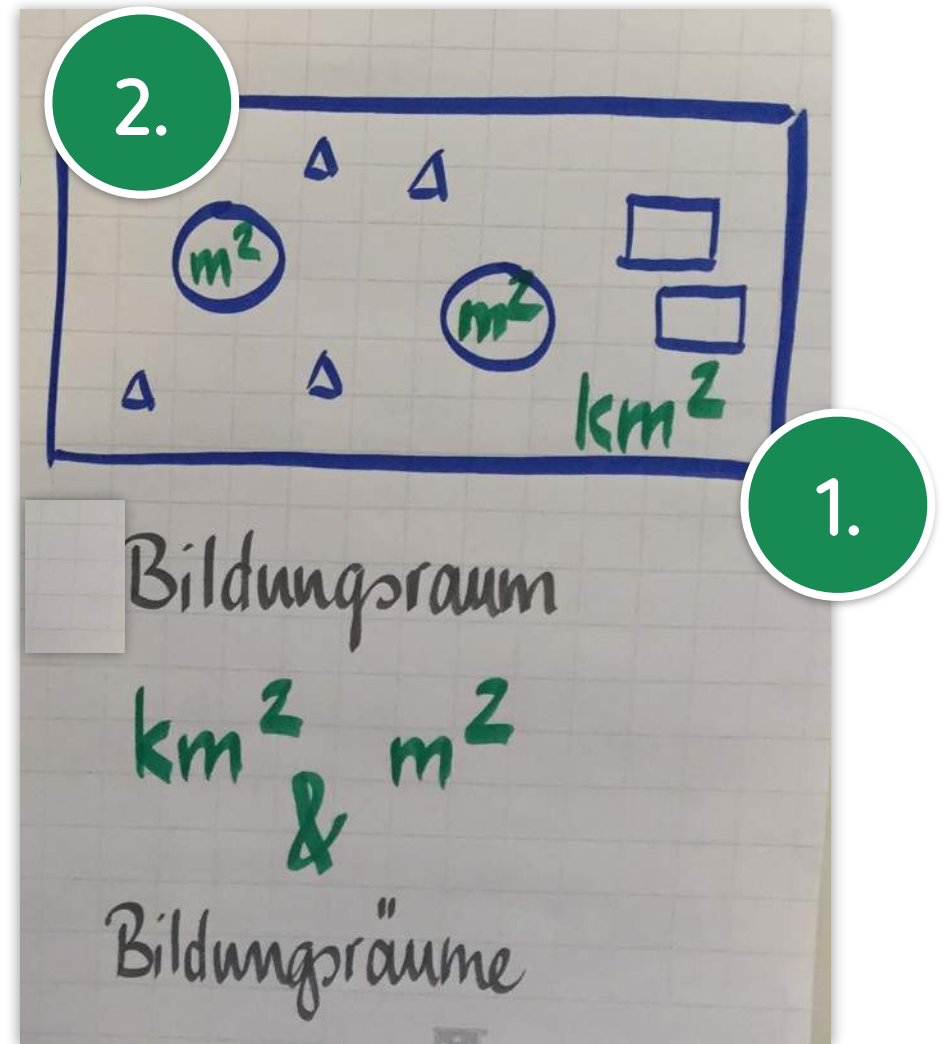 2.
m²
m²
km²
1.
Bildungsraum
km² m²
&
Bildungsräume